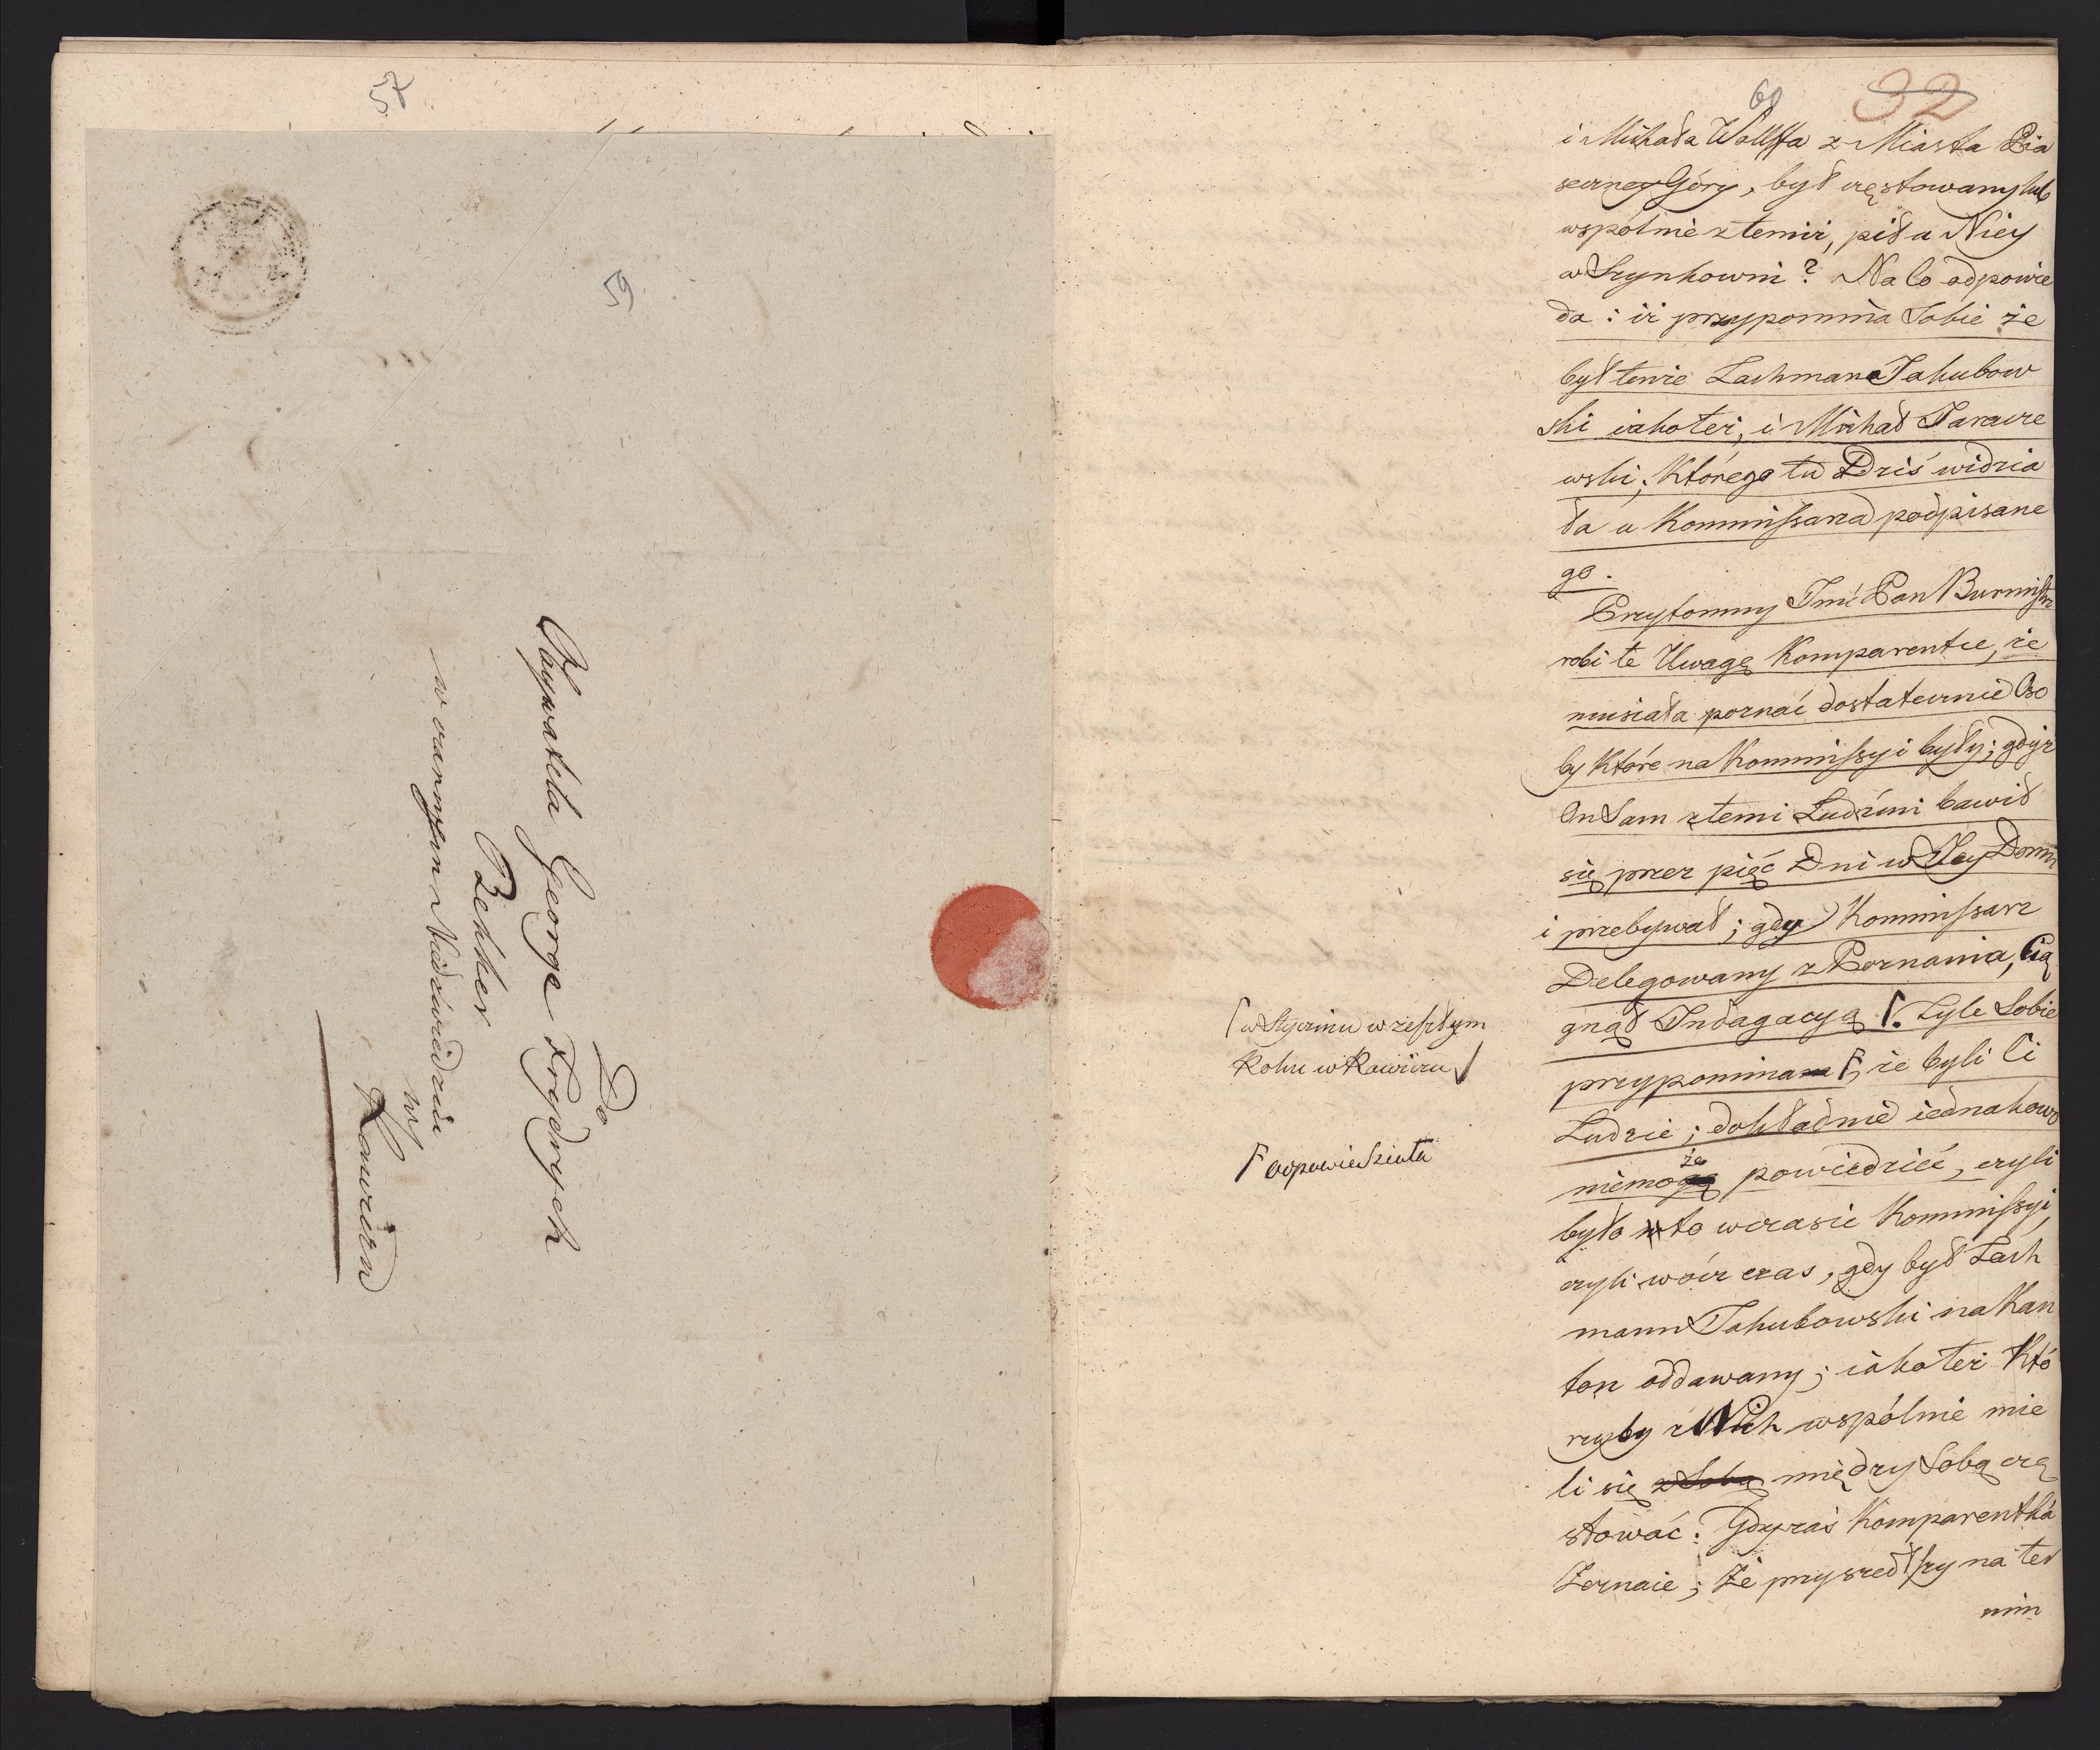 57
59
Do
Obywatela George Frydrych
Zekker
w czarnym Niedźwiedziu
w
Rawiczu
60
32
i Michała Wolffa z Miasta Pia
secznej Góry, był częstowany lub
wspólnie z temiż, pił u Niey
w Szynkowni? Na to odpowie
da: iż przypomina Sobie że
był tenże Lachmann Jakubow
ski iako też, i Michał Taracze
wski, którego tu Dziś widzia
ła u Kommissarza podpisane
go.
Przytomny Jmć Pan Burmistrz
robi te Uwagę Komparentce, że
musiała poznać dostatecznie Oso
by które na Kommissyi były; gdyż
On Sam z temi Ludźmi bawił
się przez pięć Dni w Jey Domu
i przebywał; gdy Kommissarz
Delegowany z Poznania, Cią
gnął Indagacyą ſ. Tyle Sobie
przypomina F, że byli Ci
Ludzie; dokładnie iednakowo
niemoże powiedzieć, czyli
było to wczasie Kommissyi,
czyli wóicz czas, gdy był Lach
mann Jakubowski na Kan
ton oddawany; iako też Któ
rzyby z Nich wspólnie mie
li się z Sobą między Sobą czę
stować: Gdyzaś Komparentka
Zeznaie; Że przyszedłszy na ter
min
ſ w Styczniu w zeszłym
Roku w Rawiczu
F odpowiedziała